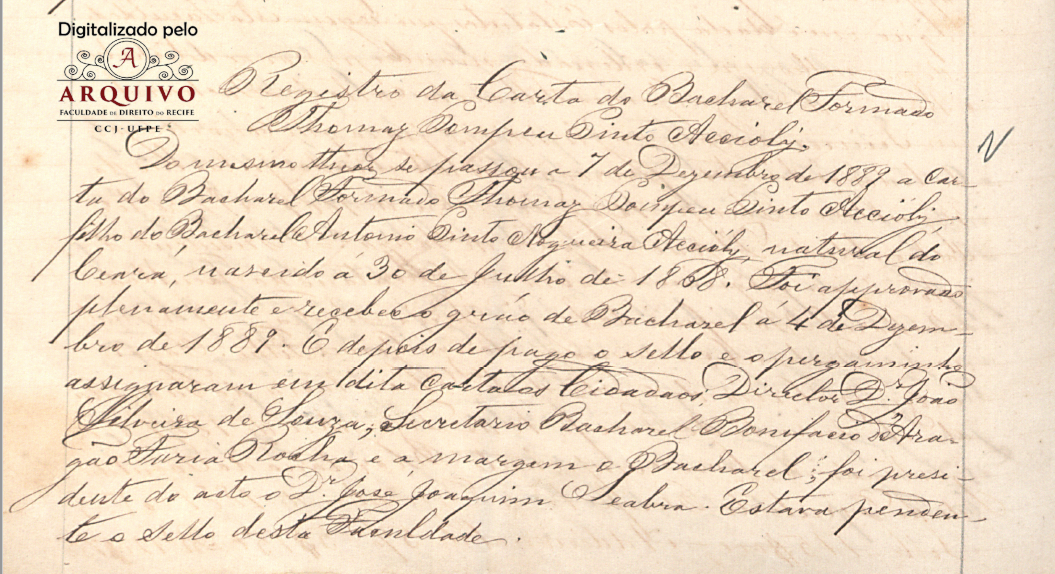 Digitalizado pelo
A
ARQUIVO
FACULDADE DE DIREITO DO RECIFE
CCJ - UFPE
Registro da Carta do Bacharel Formado
Thomaz Pompeu Pinto Accioly.
Do mesmo theor se passou a 7 de Dezembro de 1889 a Car-
ta do Bacharel Formado Thomaz Pompeu Pinto Accióly,
filho do Bacharel Antonio Pinto Nogueira Accióly, natural do
Ceará, nascido á 30 de Julho de 1868. Foi approvado
plenamente e recebeo o gráo de Bacharel a 4 de Dezem-
bro de 1889. E depois de pago o sello e o pergaminho
assignaram em dita Carta os Cidadãos, Director Dr. João
Silveira de Souza, Secretario Bacharel Bonifacio d'Ara-
gão Faria Rocha e á margem o Bacharel; foi presi-
dente do acto o Dr. José Joaquim Seabra. Estava penden-
te o sello desta Faculdade.